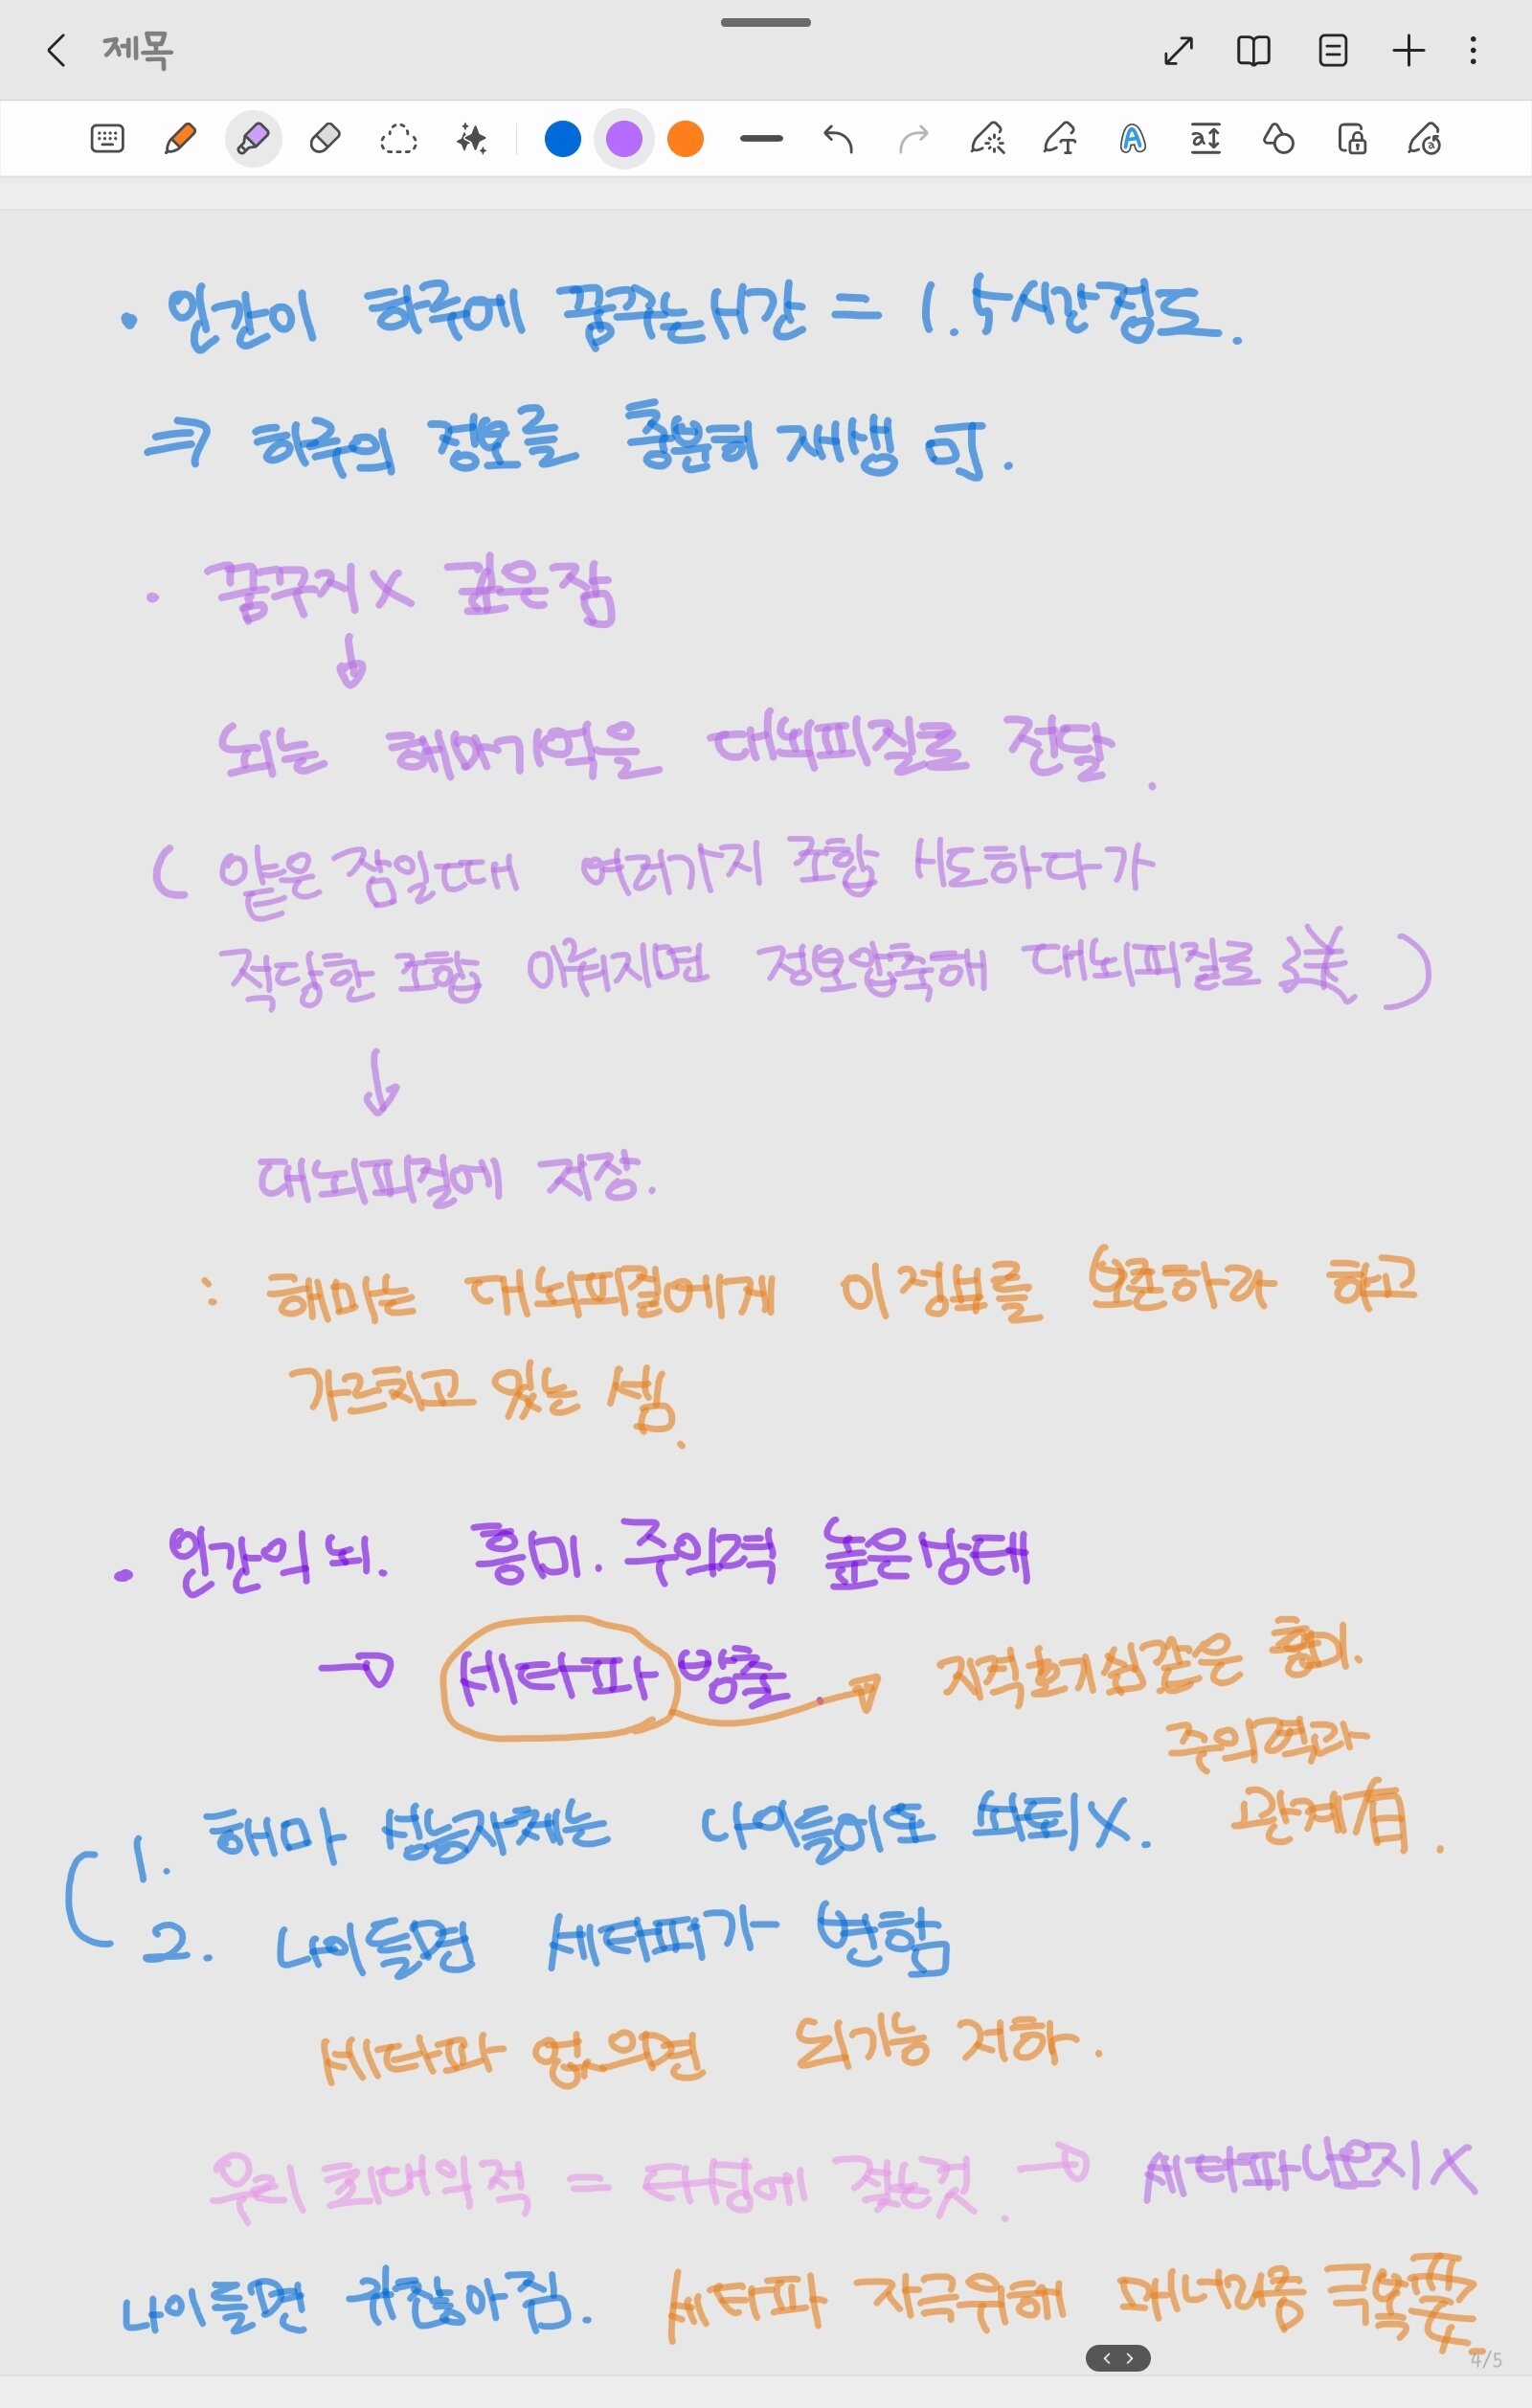 제목
· 인간이 하루에 꿈꾸는시간 = 1.5시간정도.
⇒ 하루의 정보를 충분히 재생 可.
· 꿈꾸지X 깊은잠
↓
뇌는 해마기억을 대뇌피질로 전달.
( 얕은 잠일때 여러가지 조합 시도하다가
적당한 조합 이뤄지면 정보압축해 대뇌피질로 送 )
↓
대뇌피질에 저장.
: 해마는 대뇌피질에게 이정보를 보존하라 하고
가르치고 있는 셈.
· 인간의 뇌. 흥미. 주의력 높은상태
→ 세타파 방출. → 지적호기심같은 흥미.
주의력과
관계有.
1. 해마 성능자체는 나이들어도 쇠퇴X.
2. 나이들면 세타파가 변함
세타파 없으면 뇌기능 저하.
우리 최대의적 = 타성에 젖는것. → 세타파나오지X
나이들면 귀찮아짐. 세타파 자극위해 매너리즘 극복
4/5